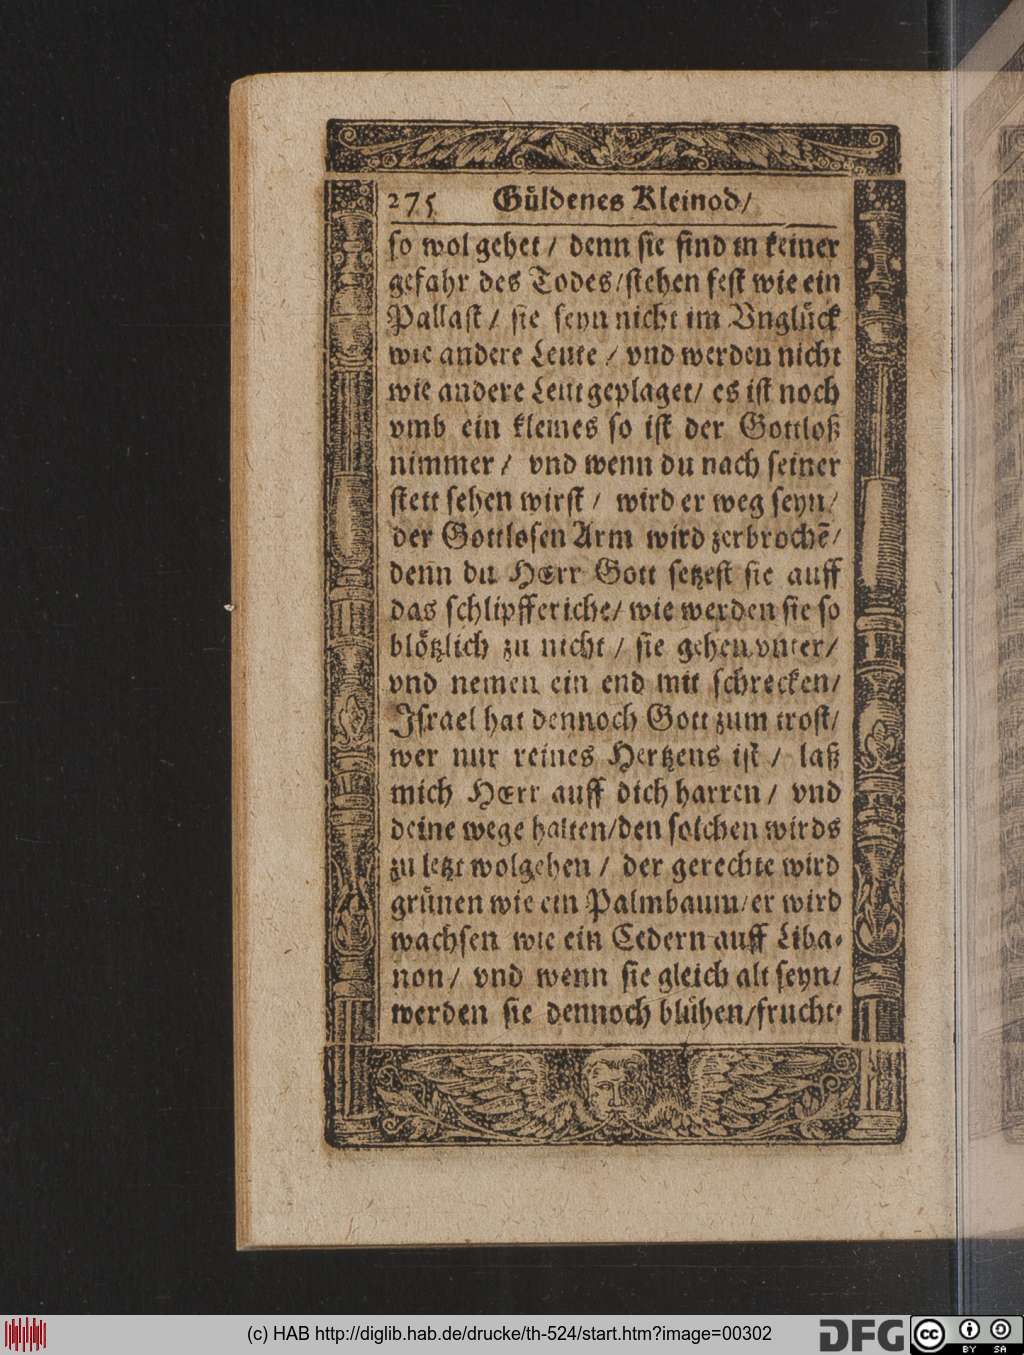 275 Güldenes Kleinod/
so wol gehet / denn sie sind in keiner
gefahr des Todes/stehen fest wie ein
Pallast / sie seyn nicht im Vnglück
wie andere Leute / vnd werden nicht
wie andere Leut geplaget/ es ist noch
vmb ein kleines so ist der Gottloß
nimmer / vnd wenn du nach seiner
stett sehen wirst / wird er weg seyn/
der Gottlosen Arm wird zerbrochē/
denn du HErr Gott setzest sie auff
das schlipfferiche/ wie werden sie so
blötzlich zu nicht / sie gehen vnter/
vnd nemen ein end mit schrecken/
Israel hat dennoch Gott zum trost/
wer nur reines Hertzens ist / laß
mich HErr auff dich harren / vnd
deine wege halten/den solchen wirds
zu letzt wolgehen / der gerechte wird
grünen wie ein Palmbaum/er wird
wachsen wie ein Cedern auff Liba-
non / vnd wenn sie gleich alt seyn/
werden sie dennoch blühen/frucht-
(c) HAB http://diglib.hab.de/drucke/th-524/start.htm?image=00302
DFG
cc BY SA